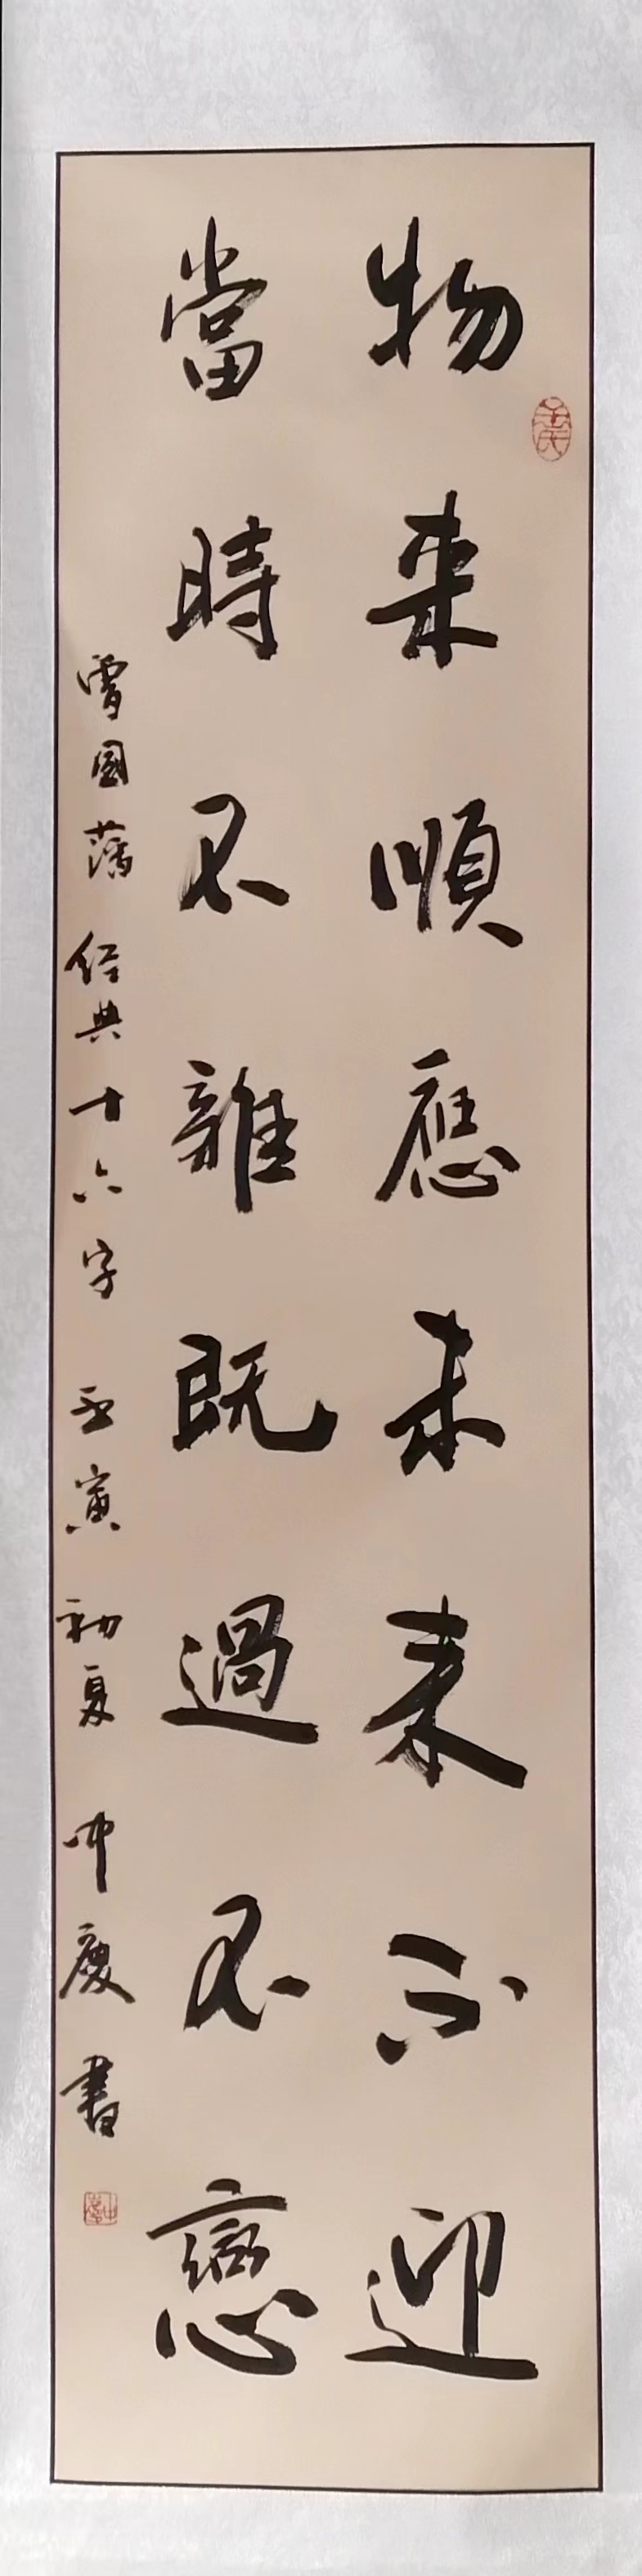 物来順應未来不迎
當時不雜既過不戀
曾國藩经典十六字 壬寅初夏 中慶書